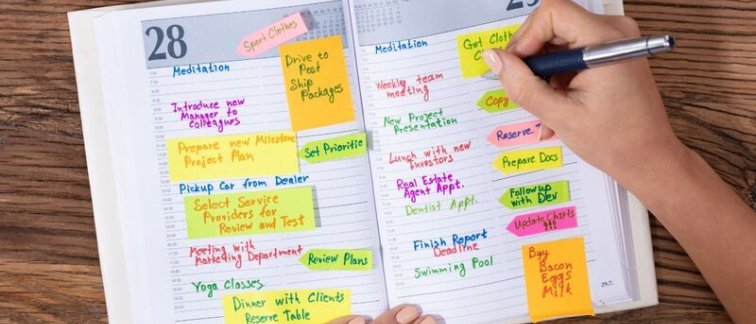 28
Sport Clothes
Meditation
Drive to
Post
Ship
Packages
Introduce new
Manager to
Colleagurs
Prepare new Milestone
Project Plan
Set Prioritie
Pickup Car from Dealer
Select Service
Providers for
Review and Test
Meeting with
Marketing Department
Review Plans
Yoga Classes
Dinner with Clients
Reserve Table
29
Meditation
Get Cloth
Weekly team
meeting
Copy
New Project
Presentation
Reserve
Lunch with new
Investors
Prepare Docs
Real Estate
Agent Appt.
Followup
with Dev
Dentist Appt.
Update Charts
!!!
Finish Report
Deadline
Swimming Pool
Buy
Bacon
Eggs
Milk